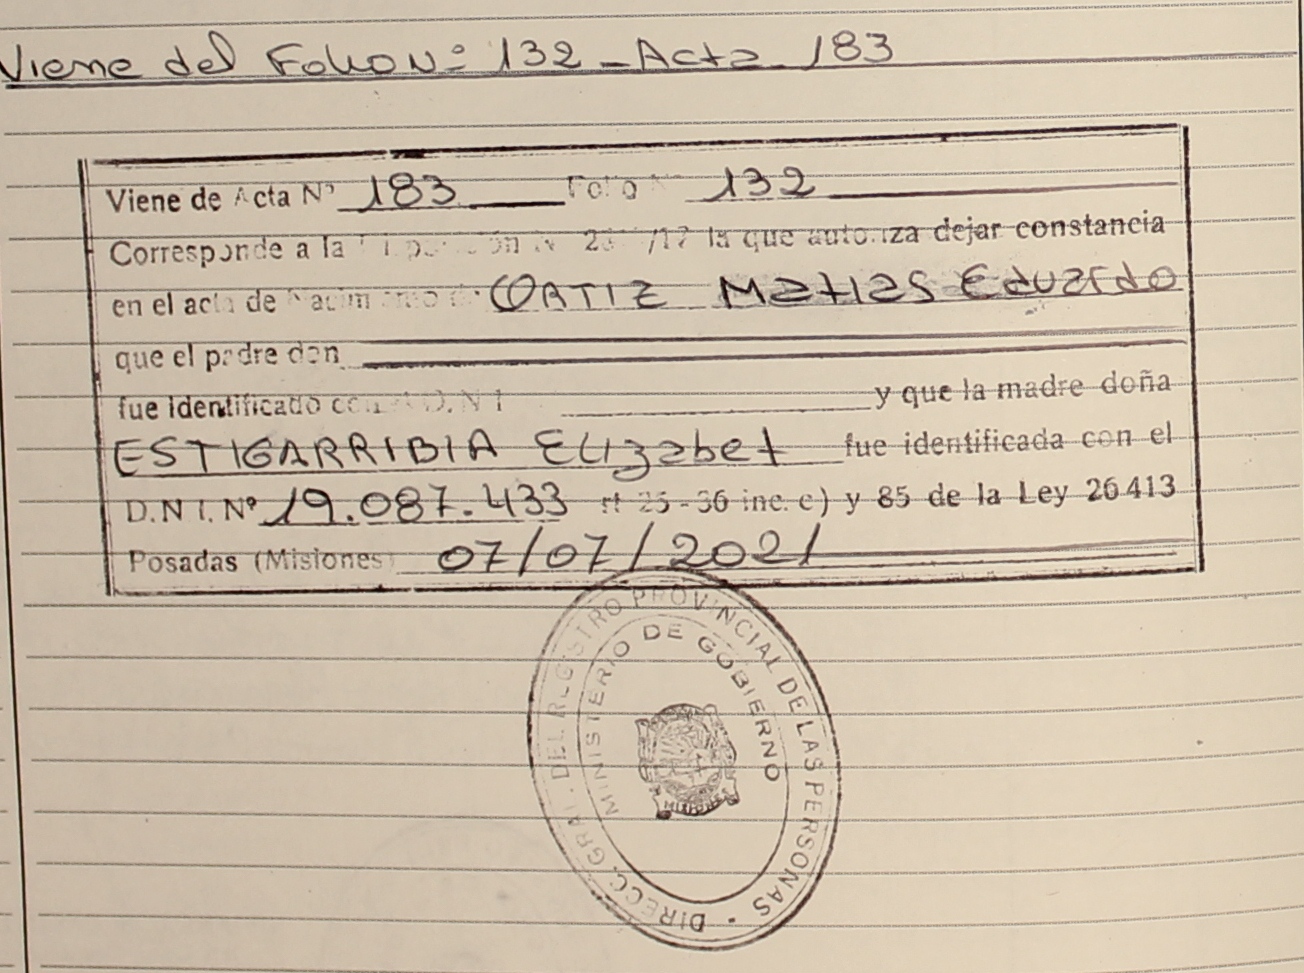 Viene del Folio Nº 132 - Acta 183
Viene de Acta Nº 183 Folio Nº 132
Corresponde a la /17 la que autoriza dejar constancia
en el acta de Nacimiento de ORTIZ Matias Eduardo
que el padre don
fue identificado con D.N.I. y que la madre doña
ESTIGARRIBIA Elizabet fue identificada con el
D.N.I. Nº 19.087.433 rt 25-36 inc. c) y 85 de la Ley 26 413
Posadas (Misiones) 07/07/2021
DIRECC. GRAL. DEL REGISTRO PROVINCIAL DE LAS PERSONAS
MINISTERIO DE GOBIERNO
MISIONES